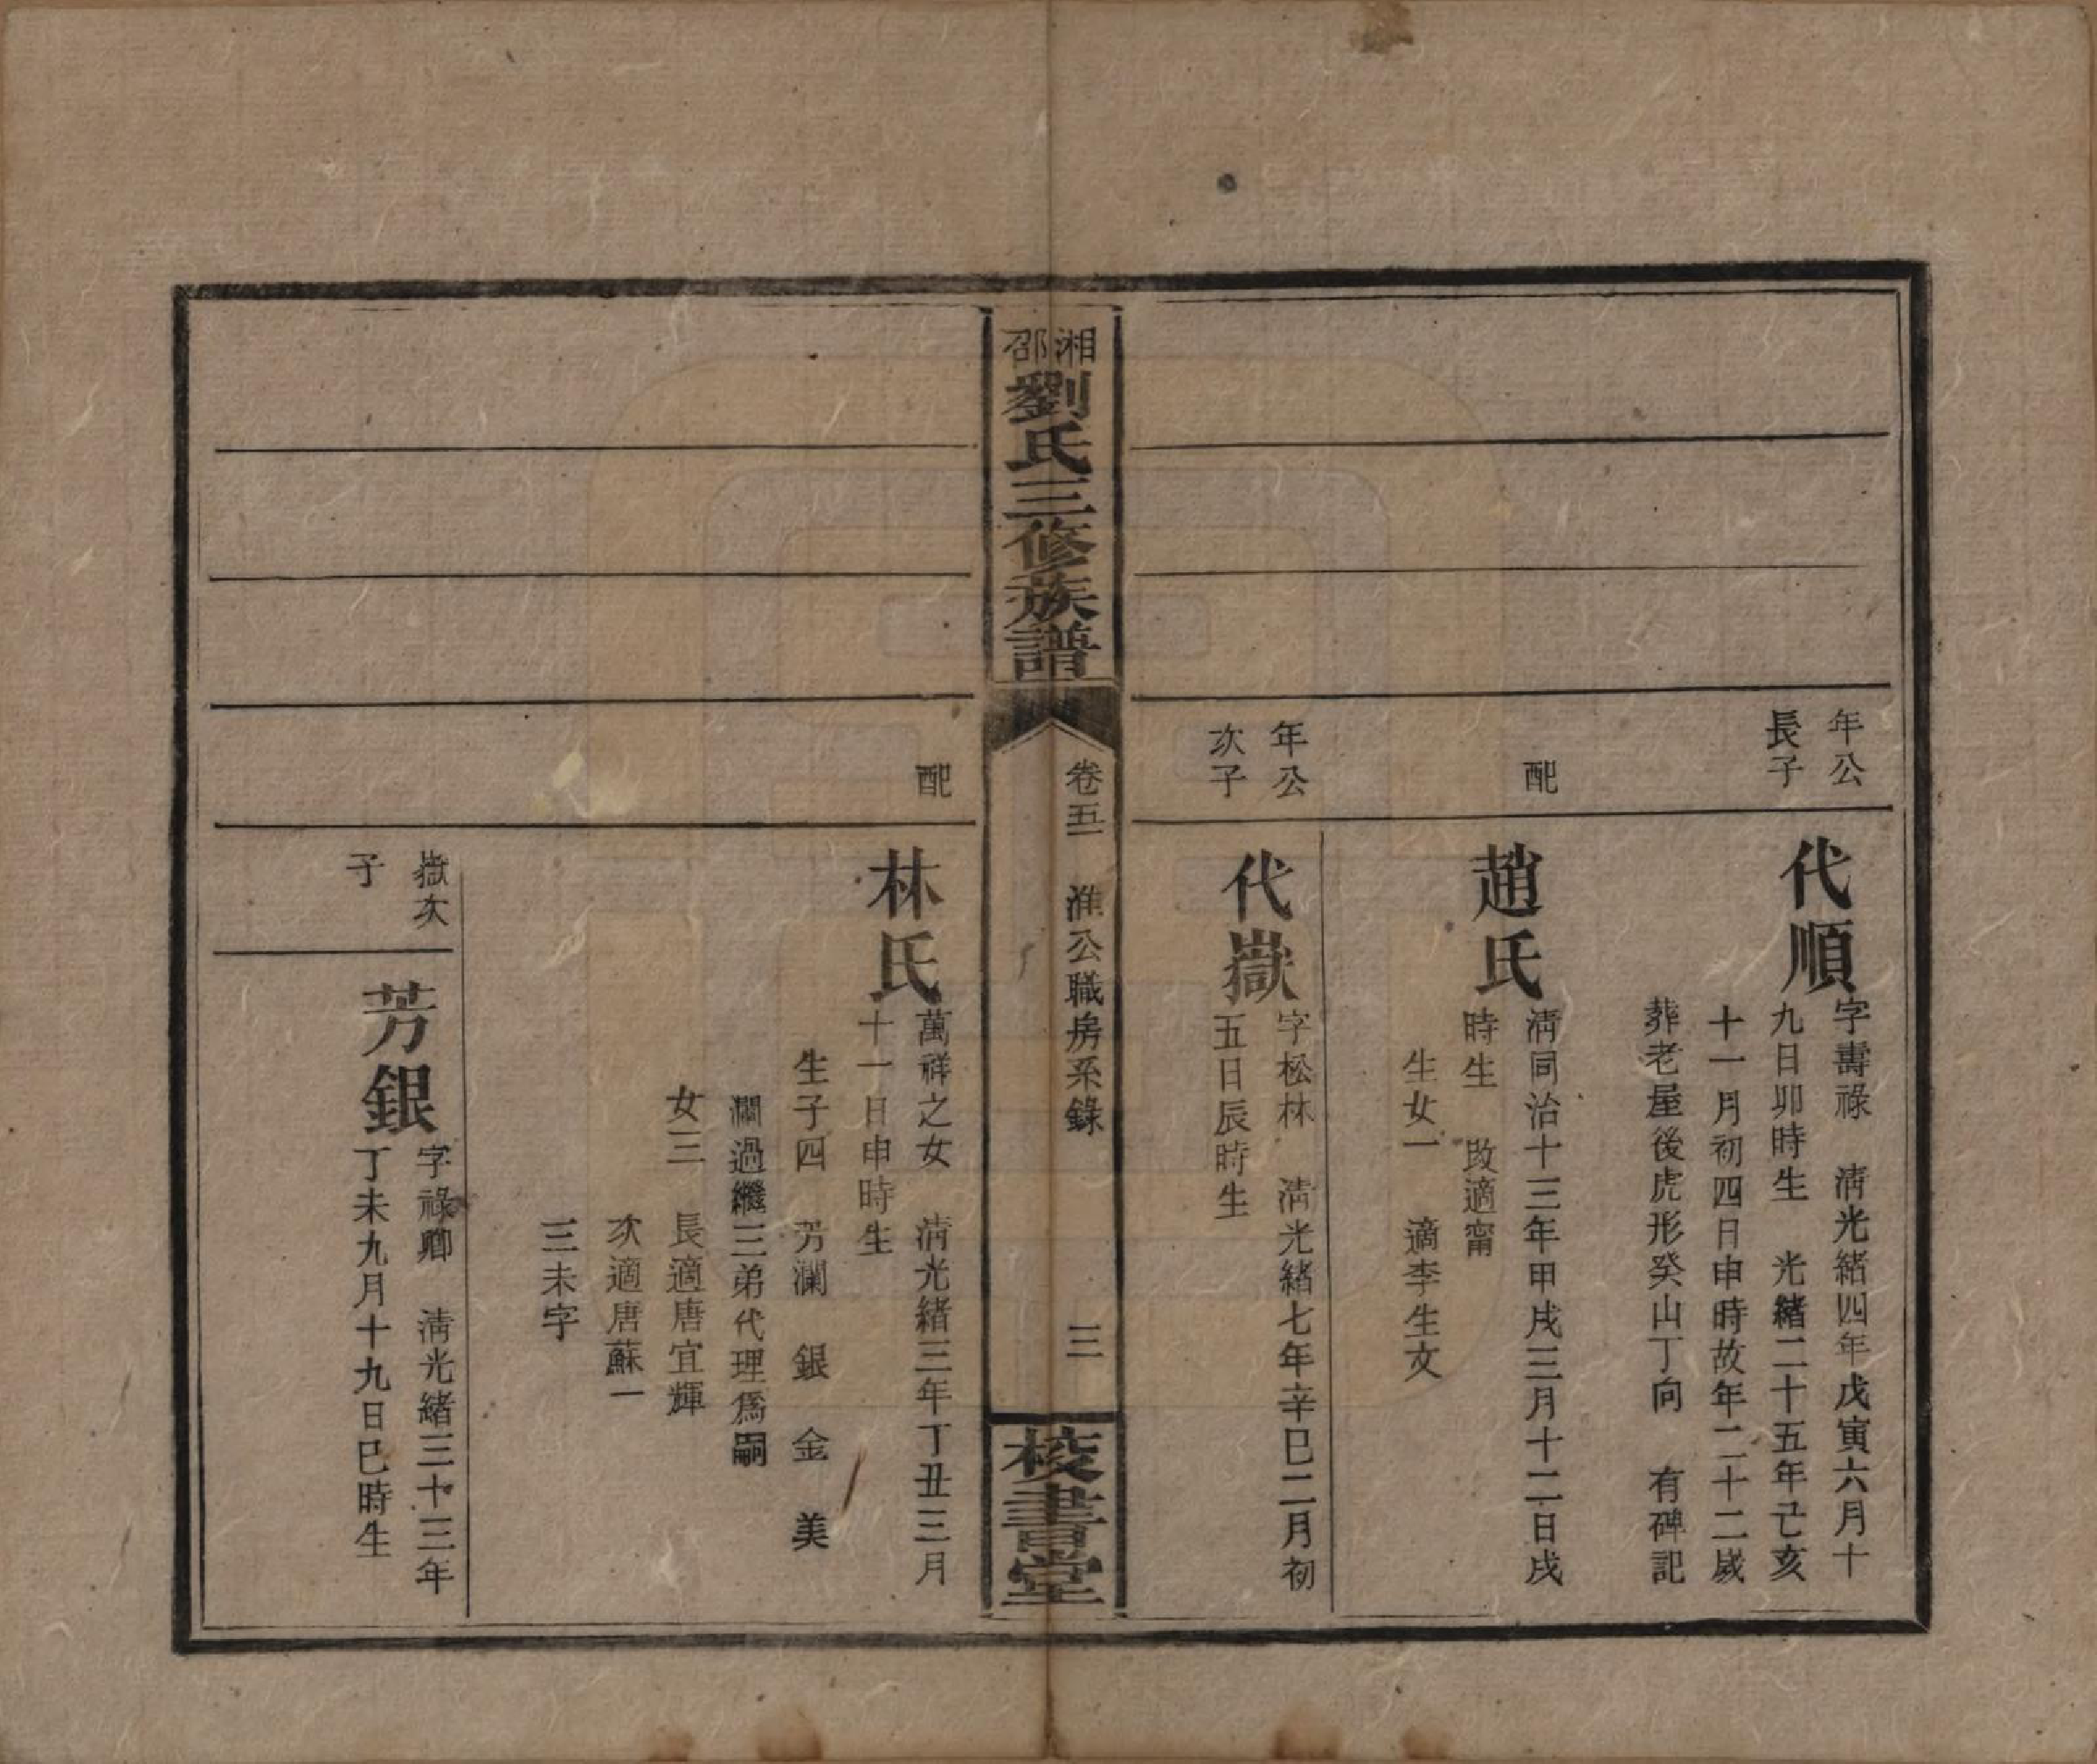 年公
長子
代順
字壽祿　淸光緒四年戊寅六月十
九日卯時生　光緒二十五年己亥
十一月初四日申時故年二十二歲
葬老屋後虎形癸山丁向　有碑記
配
趙氏
淸同治十三年甲戌三月十二日戌
時生　改適甯
生女一　適李生文
年公
次子
代嶽
字松林　淸光緒七年辛巳二月初
五日辰時生
湘邵劉氏三修族譜
卷五　淮公職房系錄
三
校書堂
配
林氏
萬祥之女　淸光緒三年丁丑三月
十一日申時生
生子四　芳瀾　銀　金　美
瀾過繼三弟代理爲嗣
女三　長適唐宜輝
次適唐蘇一
三未字
嶽次
子
芳銀
字祿卿　淸光緒三十三年
丁未九月十九日巳時生